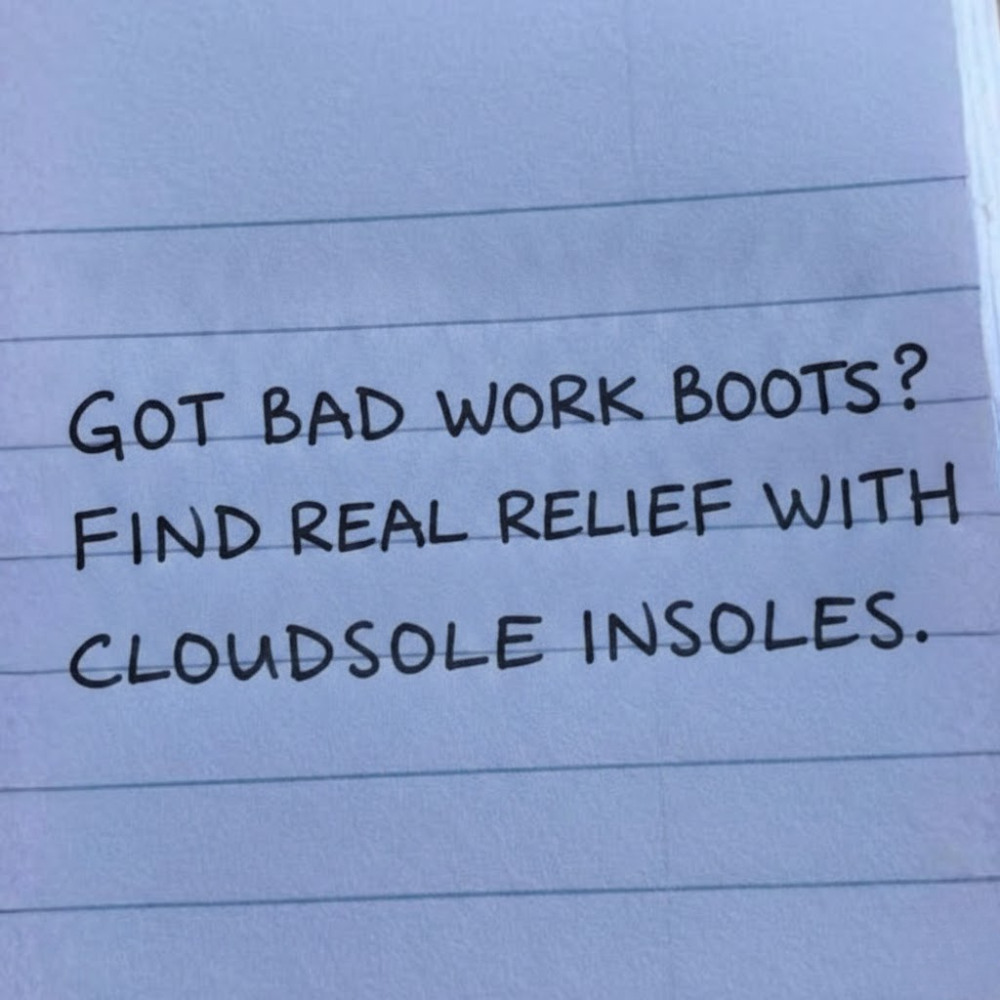 GOT BAD WORK BOOTS?
FIND REAL RELIEF WITH
CLOUDSOLE INSOLES.